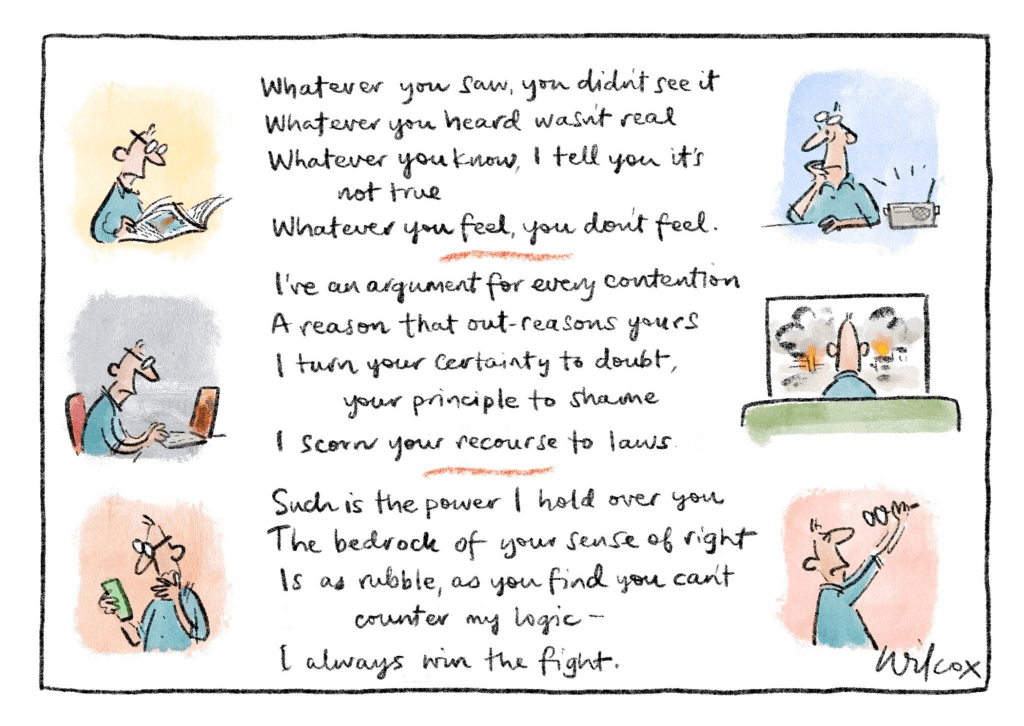 Whatever you saw, you didn't see it
Whatever you heard wasn't real
Whatever you know, I tell you it's
not true
Whatever you feel, you don't feel.
I've an argument for every contention
A reason that out-reasons yours
I turn your certainty to doubt,
your principle to shame
I scorn your recourse to laws.
Such is the power I hold over you
The bedrock of your sense of right
Is as rubble, as you find you can't
counter my logic –
I always win the fight.
Wilcox